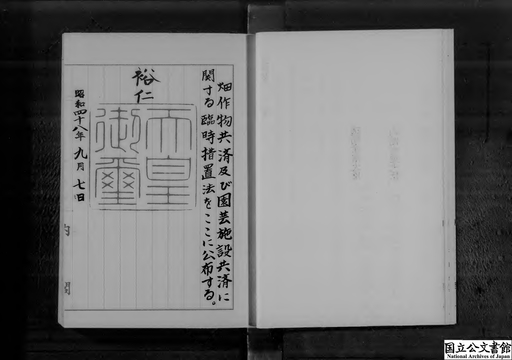 畑作物共済及び園芸施設共済に
関する臨時措置法をここに公布する。
裕仁
天皇
御璽
昭和四十八年九月七日
内
閣
国立公文書館
National Archives of Japan